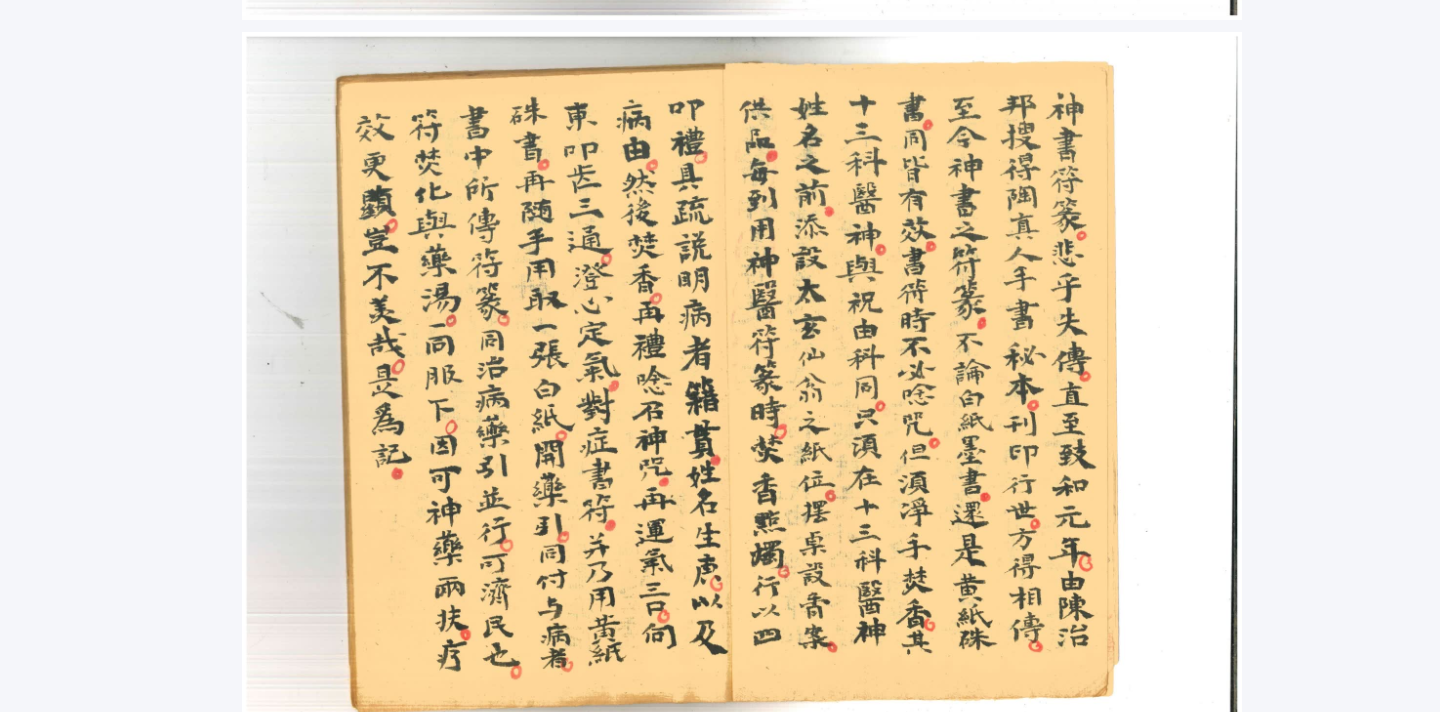 神書符篆悲乎失傳直至致和元年由陳治
邦搜得陶真人手書秘本刊印行世方得相傳
至今神書之符篆不論白紙墨書還是黄紙硃
書同皆有效書符時不必唸咒但須凈手焚香其
十三科醫神與祝由科同只須在十三科醫神
姓名之前添設太玄仙翁之紙位擺桌設香案
供品每到用神醫符篆時焚香點燭行以四
叩禮具疏説明病者籍貫姓名生庚以及
病由然後焚香再禮唸召神咒再運氣三口向
東叩齿三通澄心定氣對症書符并乃用黄紙
硃書再随手用取一張白紙開藥引同付与病者
書中所傳符篆同治病藥引並行可濟民也
符焚化與藥湯一同服下因可神藥兩扶疗
效更顯豈不美哉是爲記